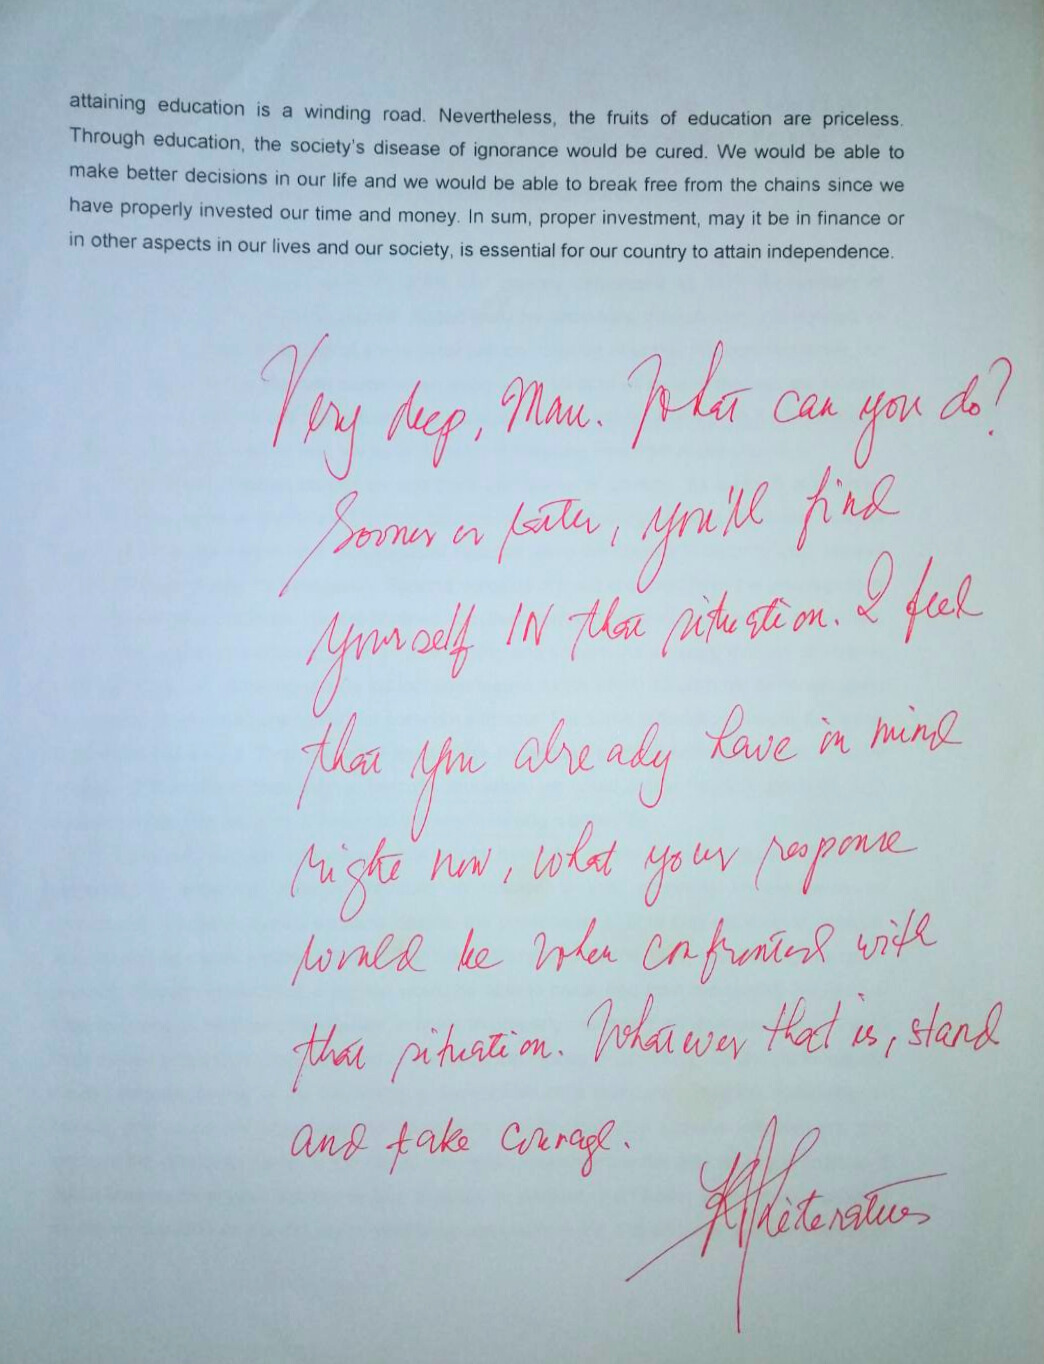 attaining education is a winding road. Nevertheless, the fruits of education are priceless.
Through education, the society's disease of ignorance would be cured. We would be able to
make better decisions in our life and we would be able to break free from the chains since we
have properly invested our time and money. In sum, proper investment, may it be in finance or
in other aspects in our lives and our society, is essential for our country to attain independence.
Very deep, Man. What can you do?
Sooner or later, you'll find
yourself IN that situation. I feel
that you already have in mind
right now, what your response
would be when confronted with
that situation. Whatever that is, stand
and take courage.